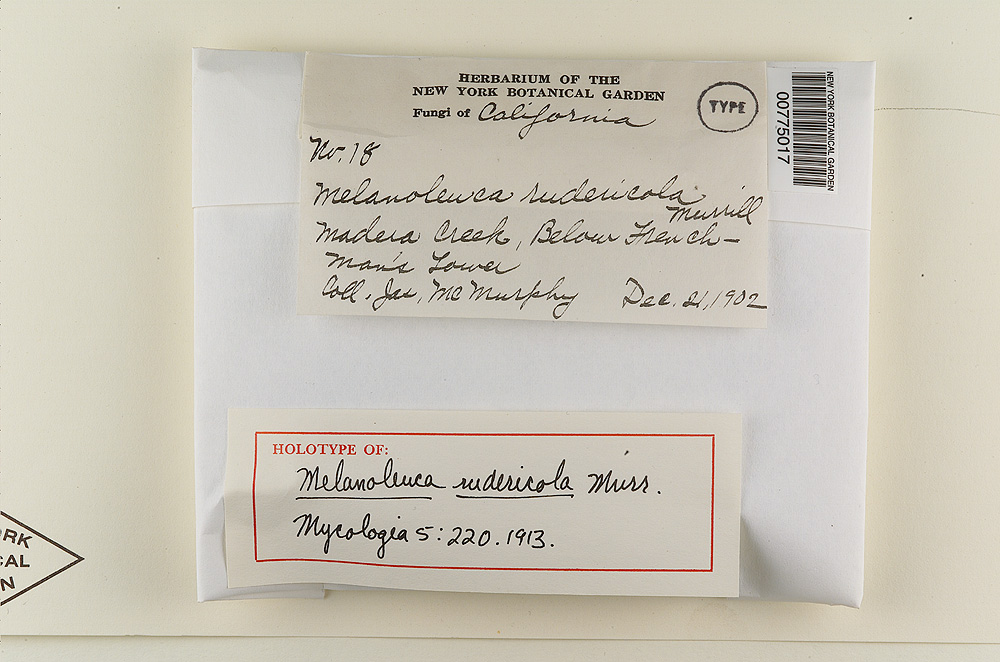 HERBARIUM OF THE
NEW YORK BOTANICAL GARDEN
Fungi of California
TYPE
No. 18
Melanoleuca rudericola
Murrill
Madera Creek, Below French-
man's Tower
Coll. Jas. McMurphy Dec. 21, 1902
NEW YORK BOTANICAL GARDEN
00775017
HOLOTYPE OF:
Melanoleuca rudericola Murr.
Mycologia 5: 220. 1913.
RK
CAL
N